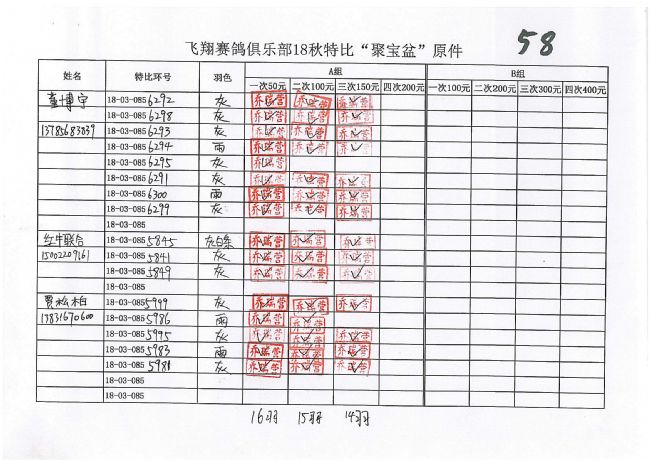 飞翔赛鸽俱乐部18秋特比“聚宝盆”原件
58
姓名 特比环号 羽色 A组 B组
一次50元 二次100元 三次150元 四次200元 一次100元 二次200元 三次300元 四次400元
董博宇 18-03-085 6292 灰 乔瑞营 乔瑞营 乔瑞营
18-03-085 6298 灰 乔瑞营 乔瑞营 乔瑞营
13785683039 18-03-085 6293 灰 乔瑞营 乔瑞营 乔瑞营
18-03-085 6294 雨 乔瑞营 乔瑞营 乔瑞营
18-03-085 6295 灰 乔瑞营
18-03-085 6291 灰 乔瑞营 乔瑞营 乔瑞营
18-03-085 6300 雨 乔瑞营 乔瑞营 乔瑞营
18-03-085 6299 灰 乔瑞营 乔瑞营 乔瑞营
18-03-085
红牛联合 18-03-085 5845 灰白条 乔瑞营 乔瑞营 乔瑞营
15002209161 18-03-085 5841 灰 乔瑞营 乔瑞营 乔瑞营
18-03-085 5849 灰 乔瑞营 乔瑞营 乔瑞营
18-03-085
贾松柏 18-03-085 5999 灰 乔瑞营 乔瑞营 乔瑞营
17831670600 18-03-085 5986 雨 乔瑞营 乔瑞营
18-03-085 5995 灰 乔瑞营 乔瑞营 乔瑞营
18-03-085 5983 雨 乔瑞营 乔瑞营 乔瑞营
18-03-085 5981 灰 乔瑞营 乔瑞营 乔瑞营
18-03-085
18-03-085
16羽 15羽 14羽